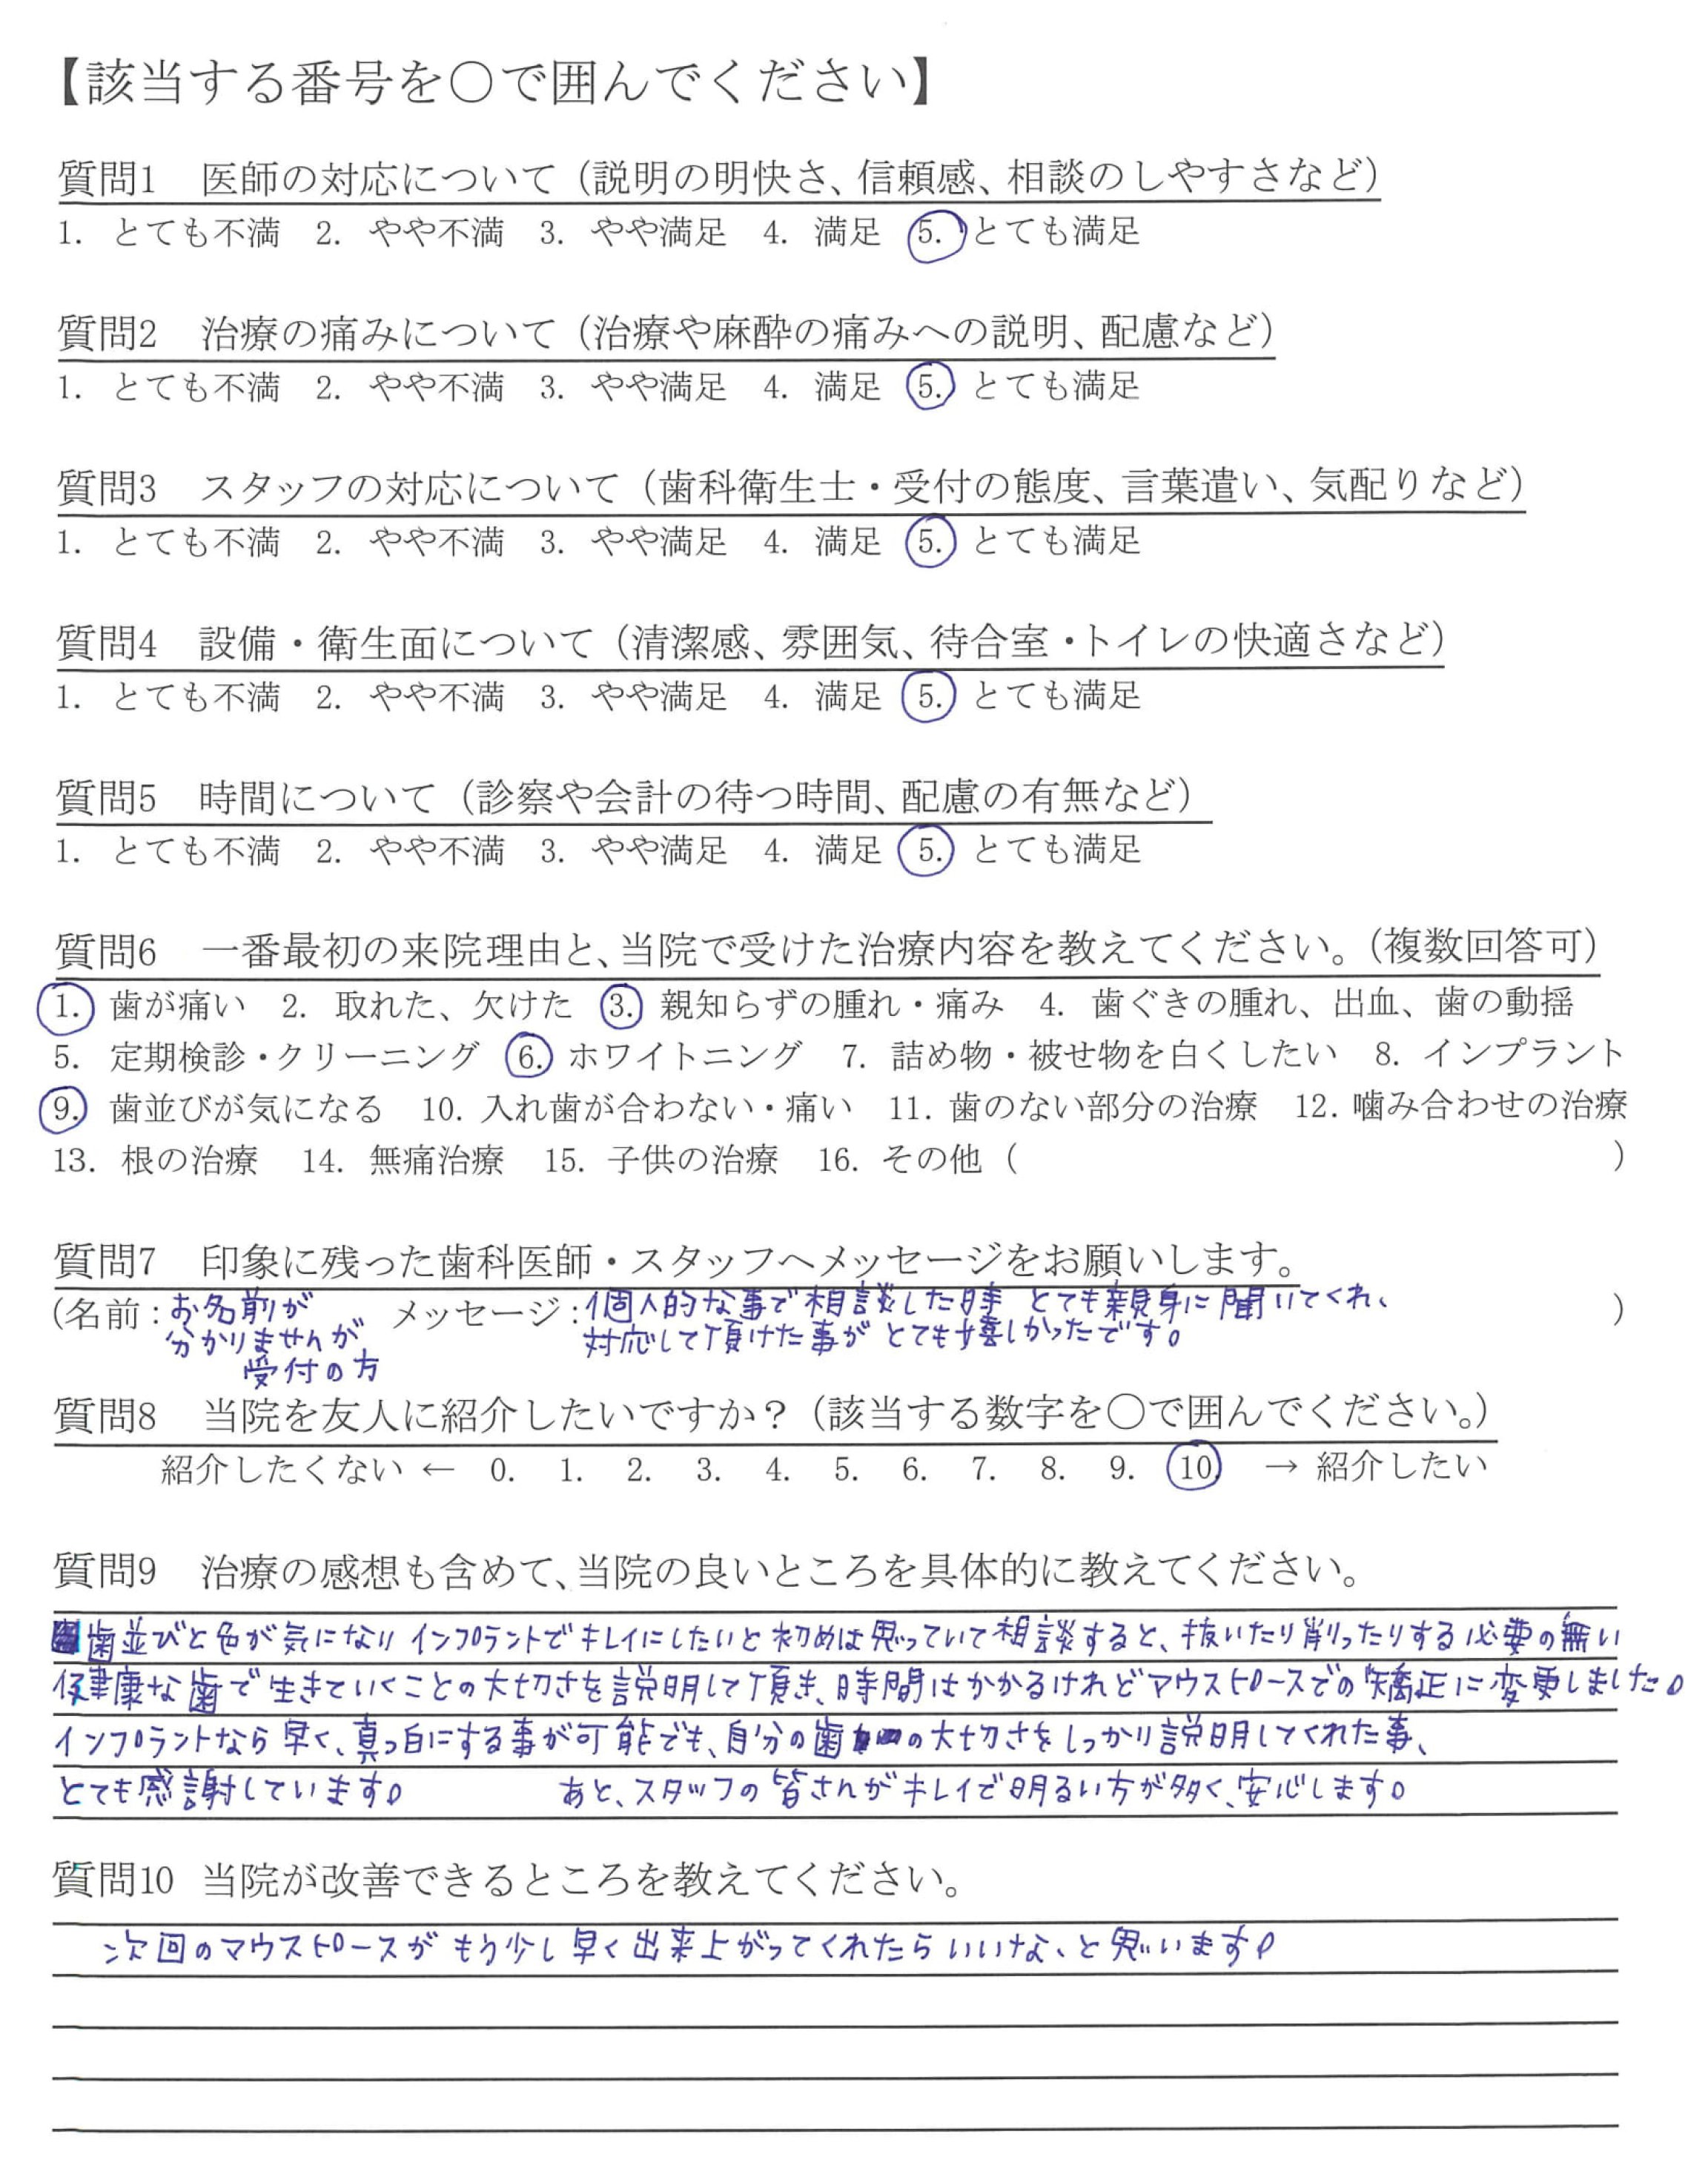 【該当する番号を〇で囲んでください】
質問1 医師の対応について（説明の明快さ、信頼感、相談のしやすさなど）
1. とても不満 2. やや不満 3. やや満足 4. 満足 5. とても満足
質問2 治療の痛みについて（治療や麻酔の痛みへの説明、配慮など）
1. とても不満 2. やや不満 3. やや満足 4. 満足 5. とても満足
質問3 スタッフの対応について（歯科衛生士・受付の態度、言葉遣い、気配りなど）
1. とても不満 2. やや不満 3. やや満足 4. 満足 5. とても満足
質問4 設備・衛生面について（清潔感、雰囲気、待合室・トイレの快適さなど）
1. とても不満 2. やや不満 3. やや満足 4. 満足 5. とても満足
質問5 時間について（診察や会計の待つ時間、配慮の有無など）
1. とても不満 2. やや不満 3. やや満足 4. 満足 5. とても満足
質問6 一番最初の来院理由と、当院で受けた治療内容を教えてください。（複数回答可）
1. 歯が痛い 2. 取れた、欠けた 3. 親知らずの腫れ・痛み 4. 歯ぐきの腫れ、出血、歯の動揺
5. 定期検診・クリーニング 6. ホワイトニング 7. 詰め物・被せ物を白くしたい 8. インプラント
9. 歯並びが気になる 10. 入れ歯が合わない・痛い 11. 歯のない部分の治療 12. 噛み合わせの治療
13. 根の治療 14. 無痛治療 15. 子供の治療 16. その他（ ）
質問7 印象に残った歯科医師・スタッフへメッセージをお願いします。
（名前：お名前が分かりませんが受付の方 メッセージ：個人的な事で相談した時 とても親身に聞いてくれ、
対応して頂けた事が とても嬉しかったです。 ）
質問8 当院を友人に紹介したいですか？（該当する数字を〇で囲んでください。）
紹介したくない ← 0. 1. 2. 3. 4. 5. 6. 7. 8. 9. 10. → 紹介したい
質問9 治療の感想も含めて、当院の良いところを具体的に教えてください。
歯並びと色が気になり インプラントでキレイにしたいと初めは思っていて相談すると、抜いたり削ったりする必要の無い
健康な歯で生きていくことの大切さを説明して頂き、時間はかかるけれどマウスピースでの矯正に変更しました。
インプラントなら早く、真っ白にする事が可能でも、自分の歯の大切さをしっかり説明してくれた事、
とても感謝しています。 あと、スタッフの皆さんがキレイで明るい方が多く、安心します。
質問10 当院が改善できるところを教えてください。
次回のマウスピースがもう少し早く出来上がってくれたらいいな、と思います。